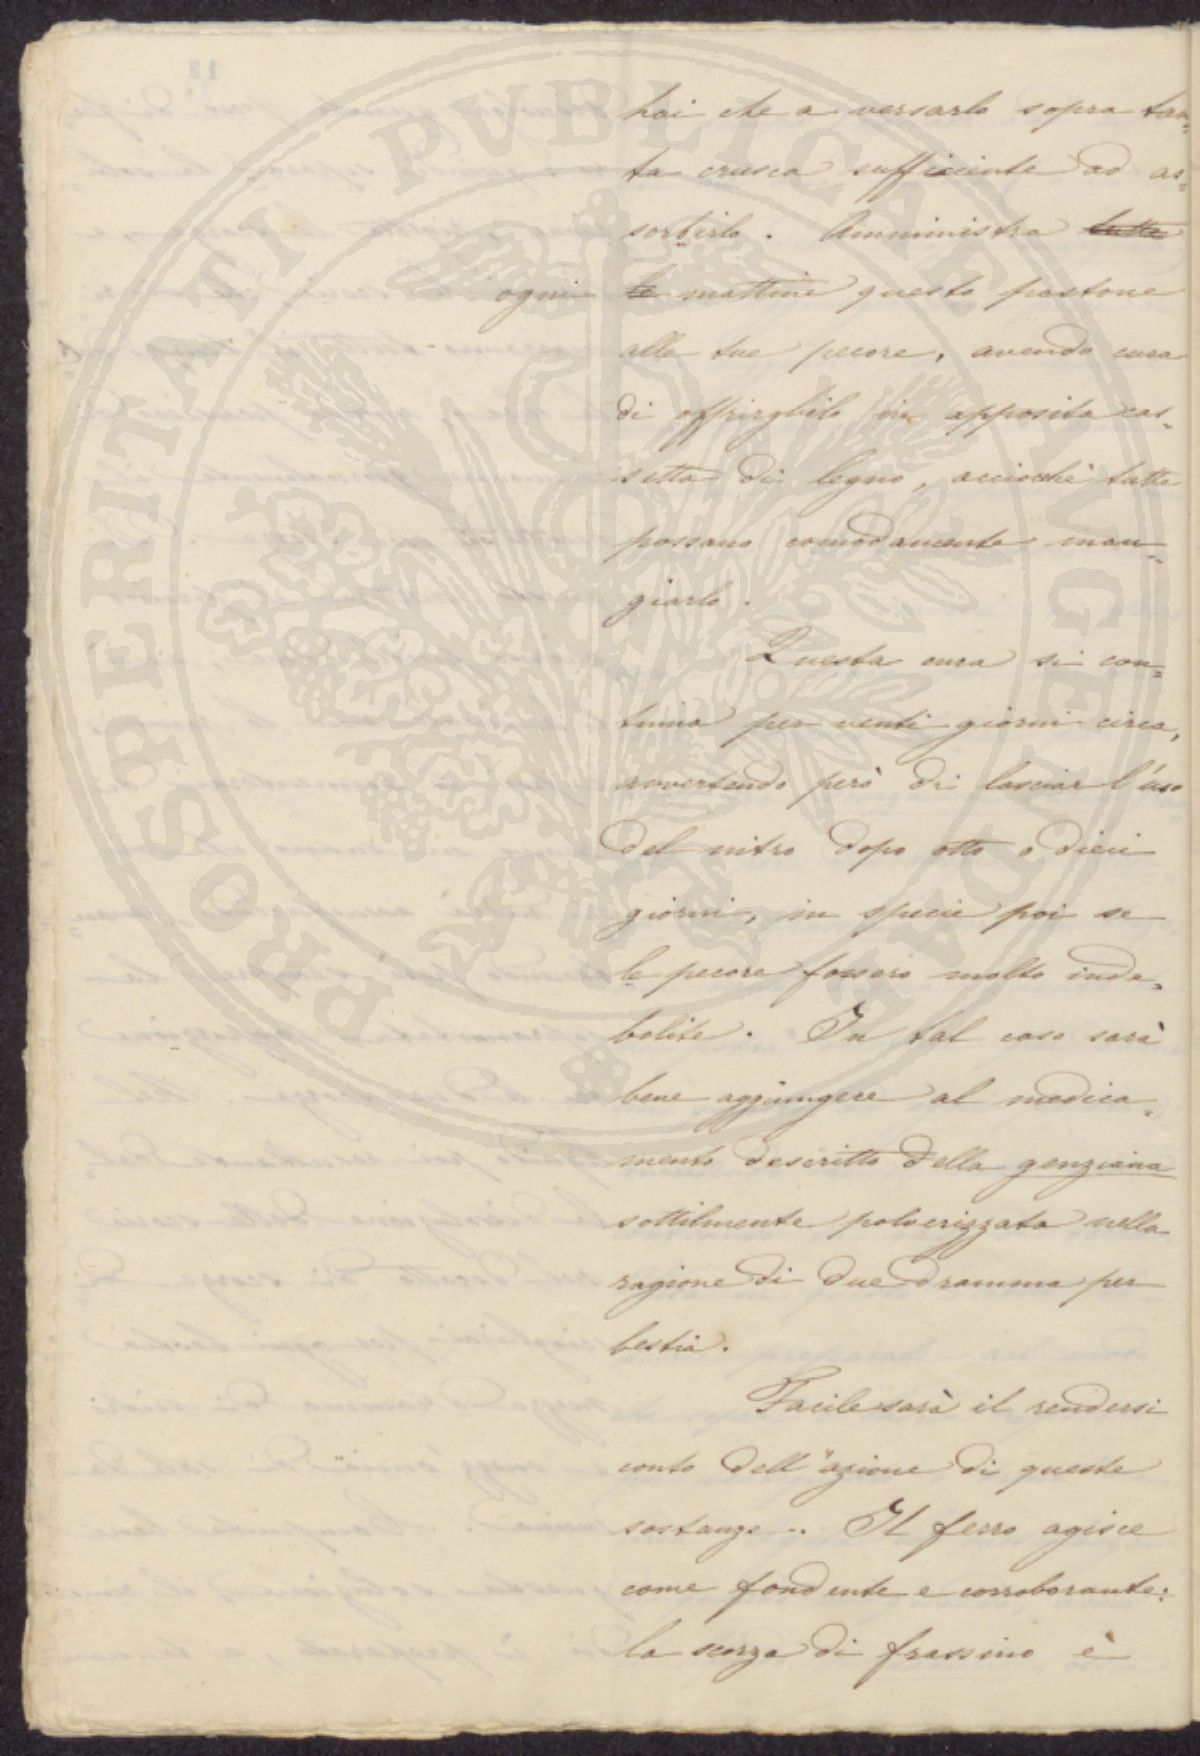 hai che a versarlo sopra tan=
ta crusca sufficiente ad as=
sorbirlo. Amministra tutte
ogni le mattine questo pastone
alle tue pecore, avendo cura
di offrirglielo in apposita cas=
setta di legno, acciocchè tutte
possano comodamente man=
giarlo.
Questa cura si con=
tinua per venti giorni circa,
avvertendo però di lasciar l'uso
del nitro dopo otto o dieci
giorni, in specie poi se
le pecore fossero molto inde=
bolite. In tal caso sarà
bene aggiungere al medica=
mento descritto della genziana
sottilmente polverizzata nella
ragione di due dramme per
bestia.
Facile sarà il rendersi
conto dell'azione di queste
sostanze. Il ferro agisce
come fondente e corroborante:
la scorza di frassino è
PROSPERITATI PVBLICAE AVGENDAE